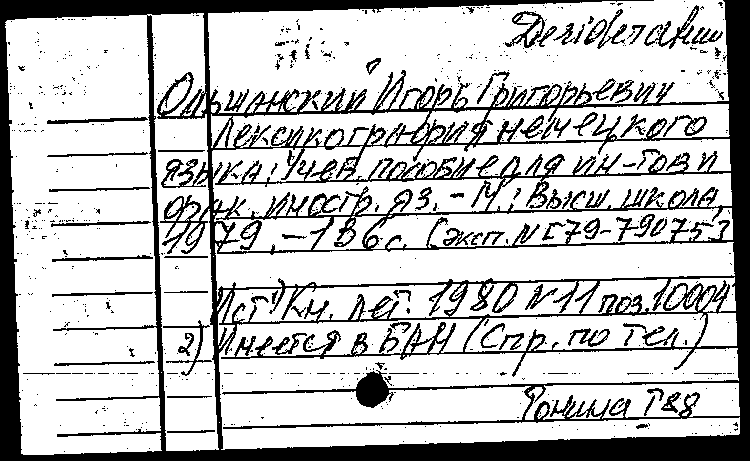 Desiderata
Ольшанский Игорь Григорьевич
Лексикография немецкого
языка: Учеб. пособие для ин-тов и
фак. иностр. яз. - М.: Высш. школа,
1979. - 136 с. [Экз. N Г79-79075]
Ист. 1) Кн. лет. 1980 N 11 поз. 10004
2) Имеется в БАН (Спр. по тел.)
Т88